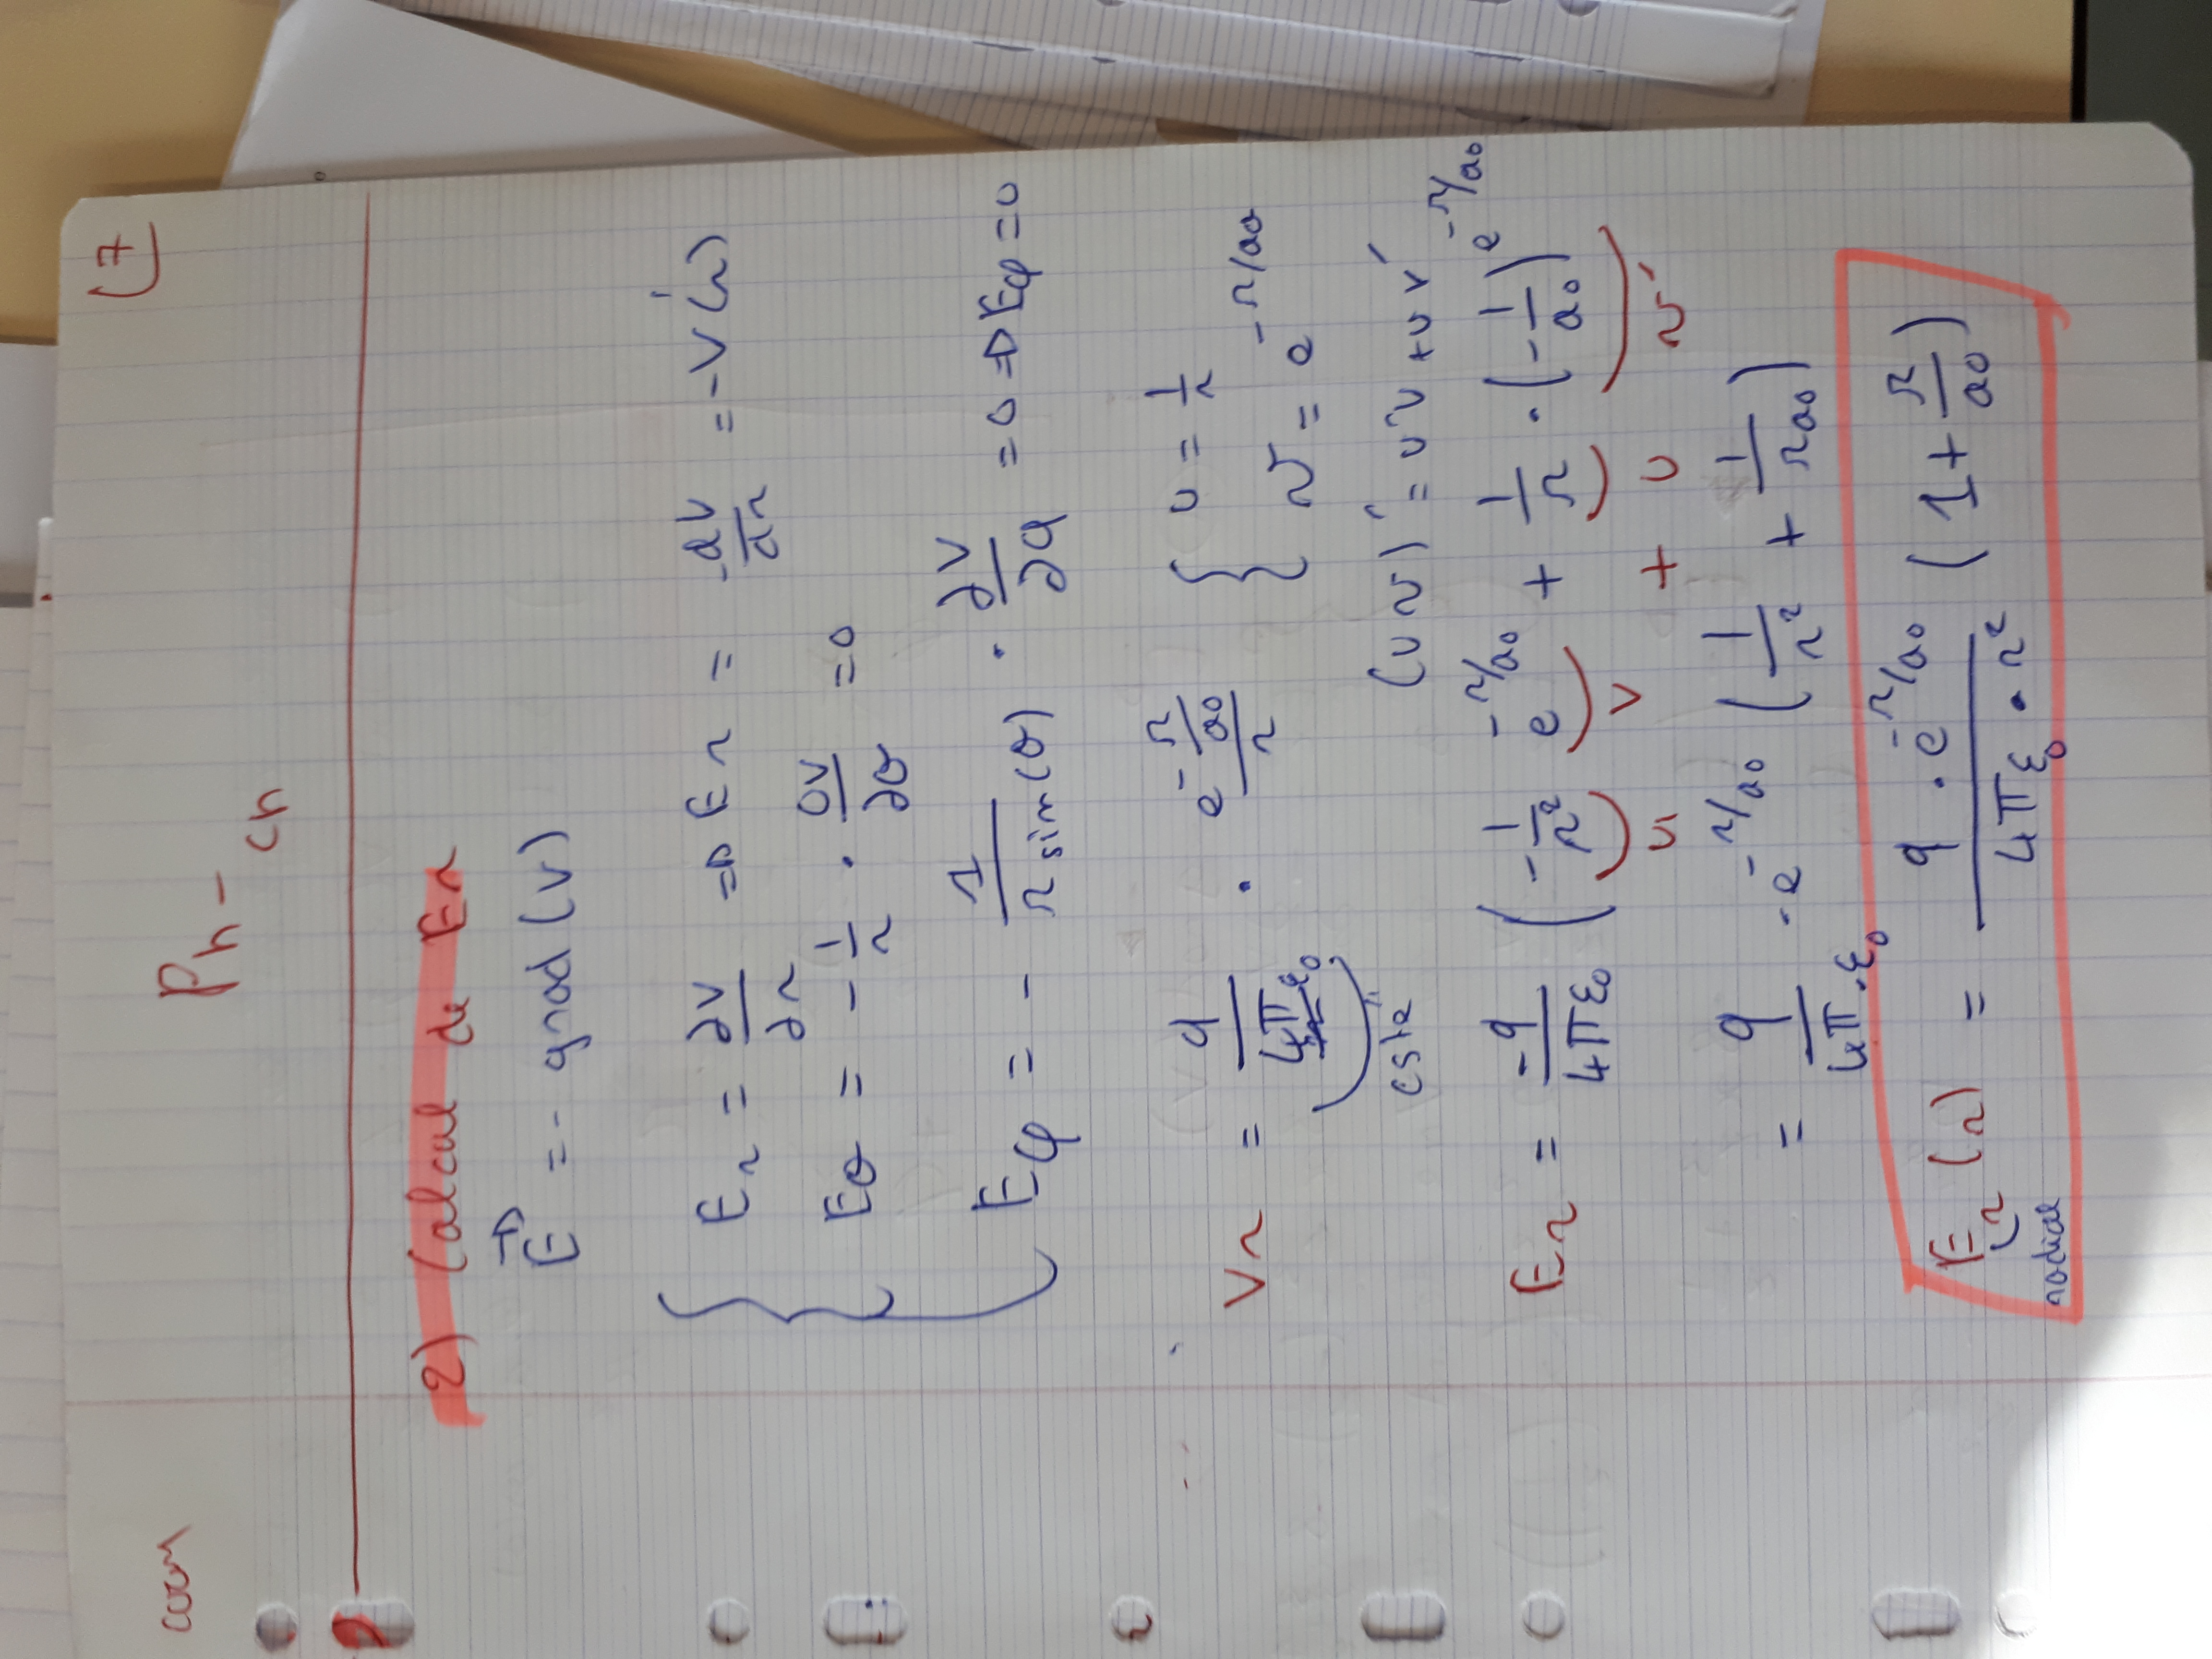 cours
Ph - ch
(7
2) Calcul de Er
E⃗ = - grad (V)
Er = ∂V/∂r => Er = -dV/dr = -V'(r)
Eθ = - 1/r . ∂V/∂θ = 0
Eφ = - 1/(r sin(θ)) . ∂V/∂φ = 0 => Eφ = 0
Vr = q/(4π ε₀) . e^(-r/a₀)/r { u = 1/r
v = e^(-r/a₀)
"cste" (uv)' = u'v + uv'
Er = -q/(4πε₀) (-1/r² e^(-r/a₀) + 1/r . (-1/a₀) e^(-r/a₀)
u' v + u v'
= q/(4π.ε₀) . e^(-r/a₀) (1/r² + 1/(ra₀))
Er (r) = q . e^(-r/a₀)/(4πε₀ . r²) (1 + r/a₀)
radial